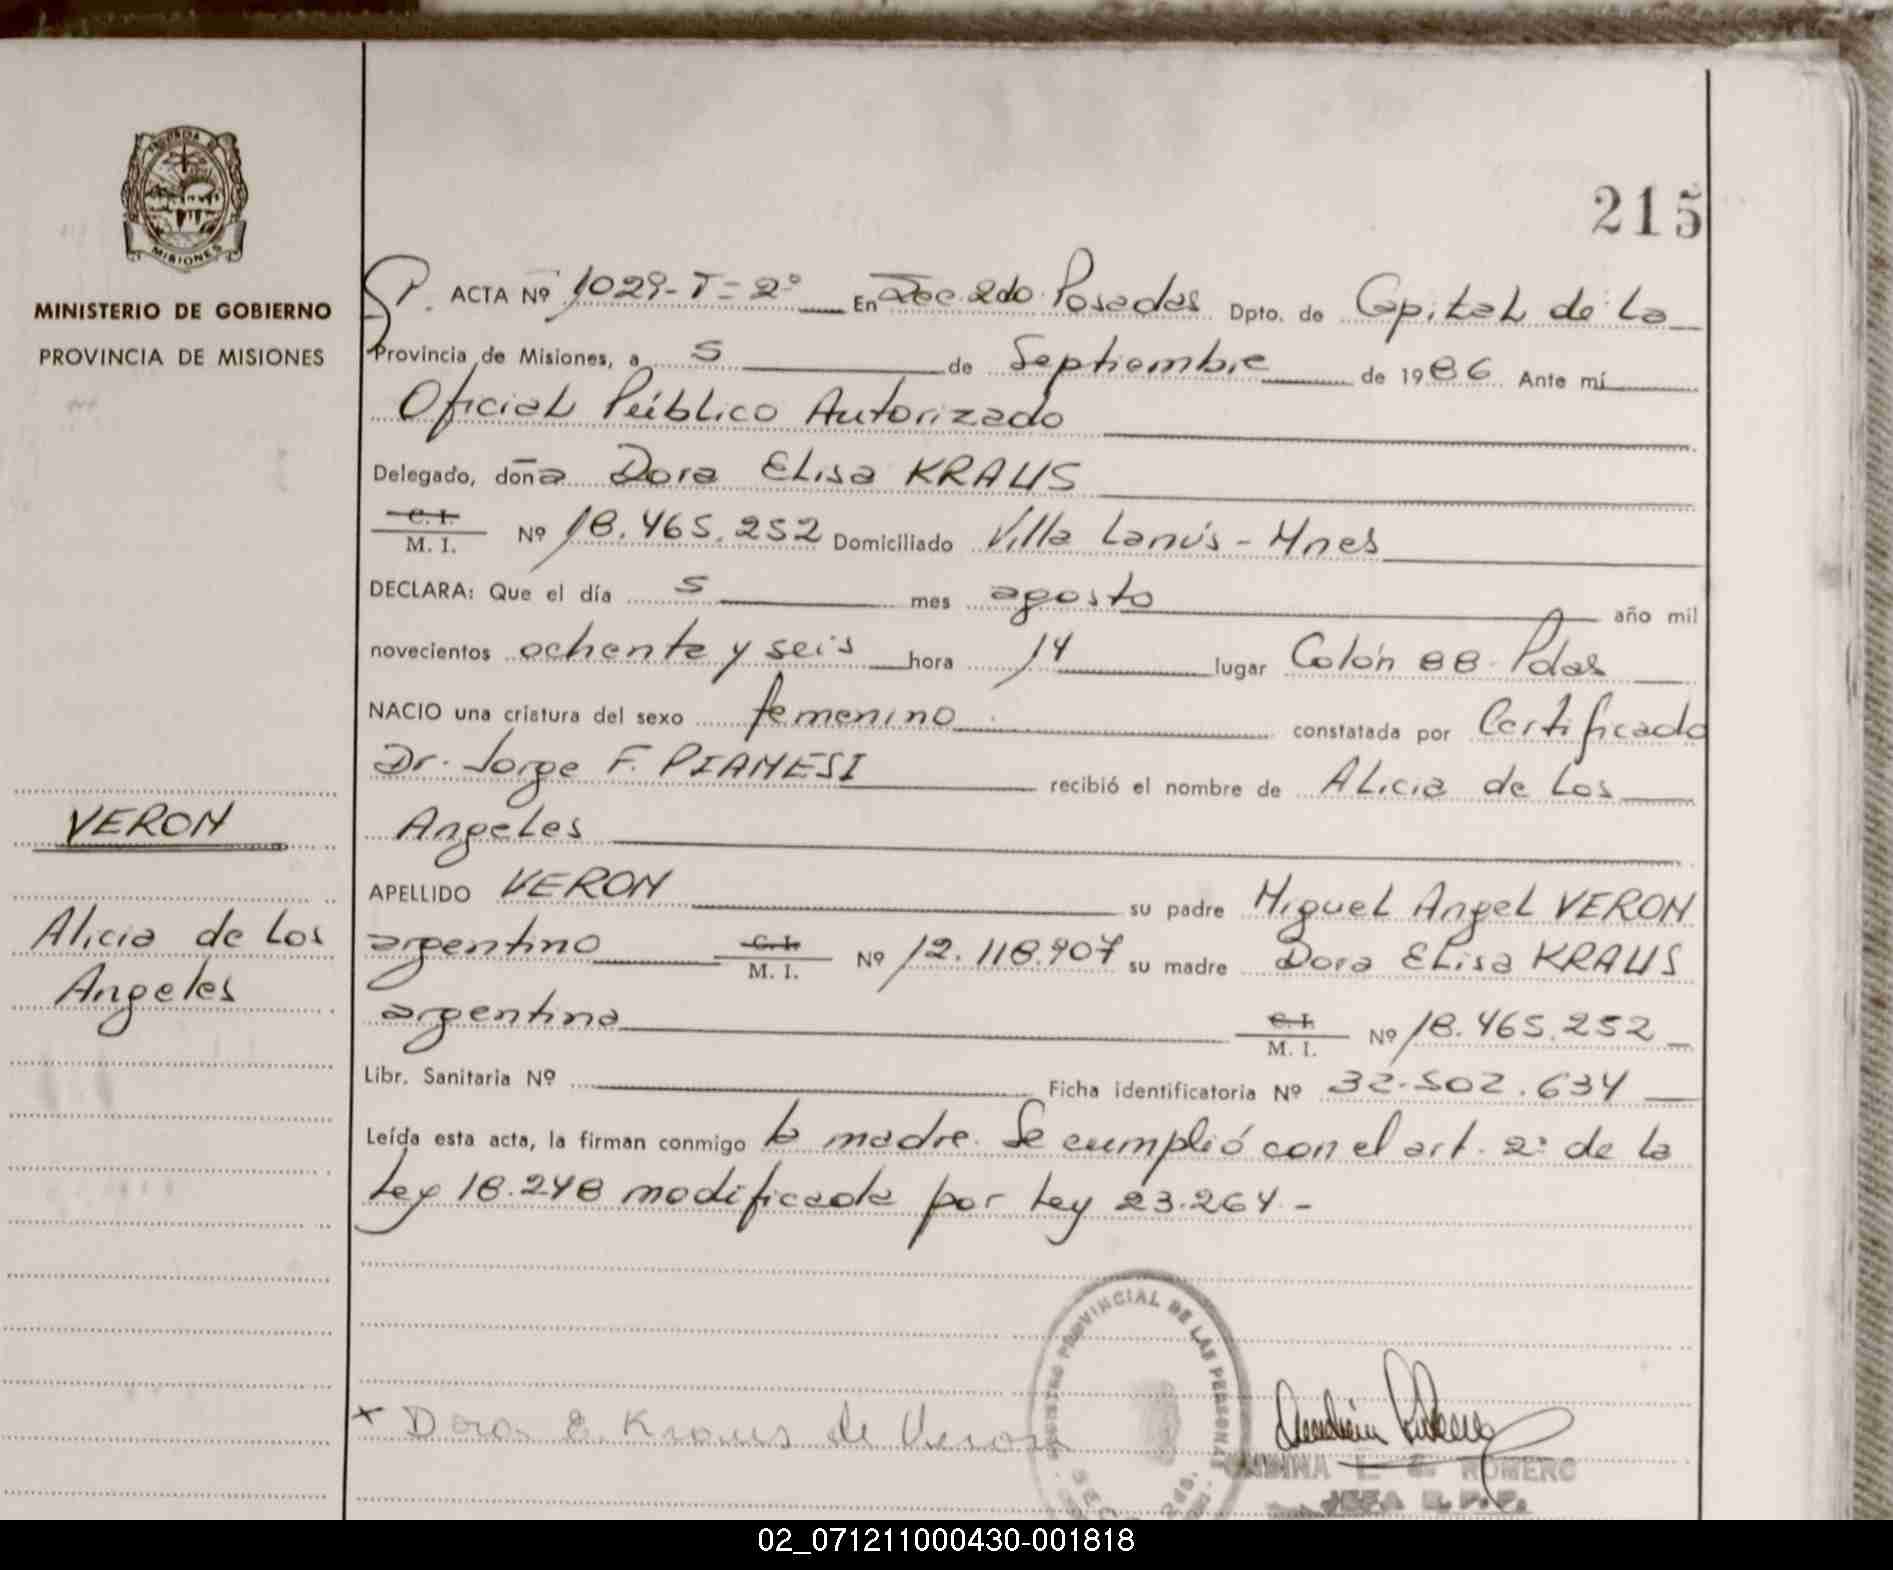 PROVINCIA DE
MISIONES
MINISTERIO DE GOBIERNO
PROVINCIA DE MISIONES
VERON
Alicia de Los
Angeles
215
ACTA Nº 1029-T=2º En Sec. 2do. Posadas Dpto. de Capital de la
Provincia de Misiones, a 5 de Septiembre de 1986 Ante mí
Oficial Público Autorizado
Delegado, doña Dora Elisa KRAUS
C. I.
M. I. Nº 18.465.252 Domiciliado Villa Lanús - Mnes
DECLARA: Que el día 5 mes agosto año mil
novecientos ochenta y seis hora 14 lugar Colón 88. Pdas
NACIO una criatura del sexo femenino constatada por Certificado
Dr. Jorge F. PIAMESI recibió el nombre de Alicia de Los
Angeles
APELLIDO VERON su padre Miguel Angel VERON
argentino C. I. M. I. Nº 12.118.907 su madre Dora Elisa KRAUS
argentina C. I. M. I. Nº 18.465.252
Libr. Sanitaria Nº Ficha identificatoria Nº 32.502.634
Leída esta acta, la firman conmigo la madre. Se cumplió con el art. 2: de la
Ley 18.248 modificada por Ley 23.264.-
REGISTRO PROVINCIAL DE LAS PERSONAS
x Dora E. Kraus de Veron
ROMERO
JEFA
02_071211000430-001818